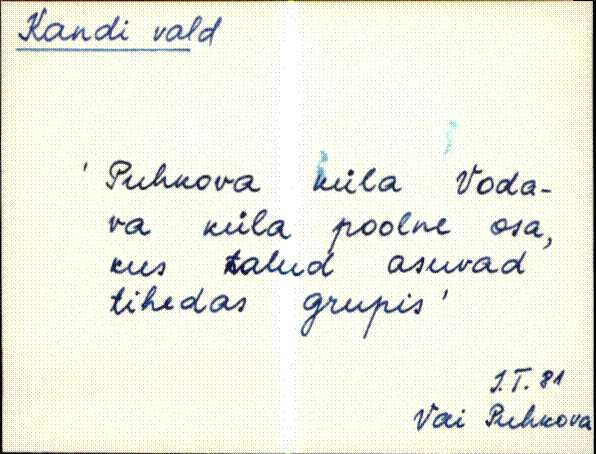 Kandi vald
'Puhkova küla Voda-
va küla poolne osa,
kus talud asuvad
tihedas grupis'
J.T. 81
Vai Puhkova